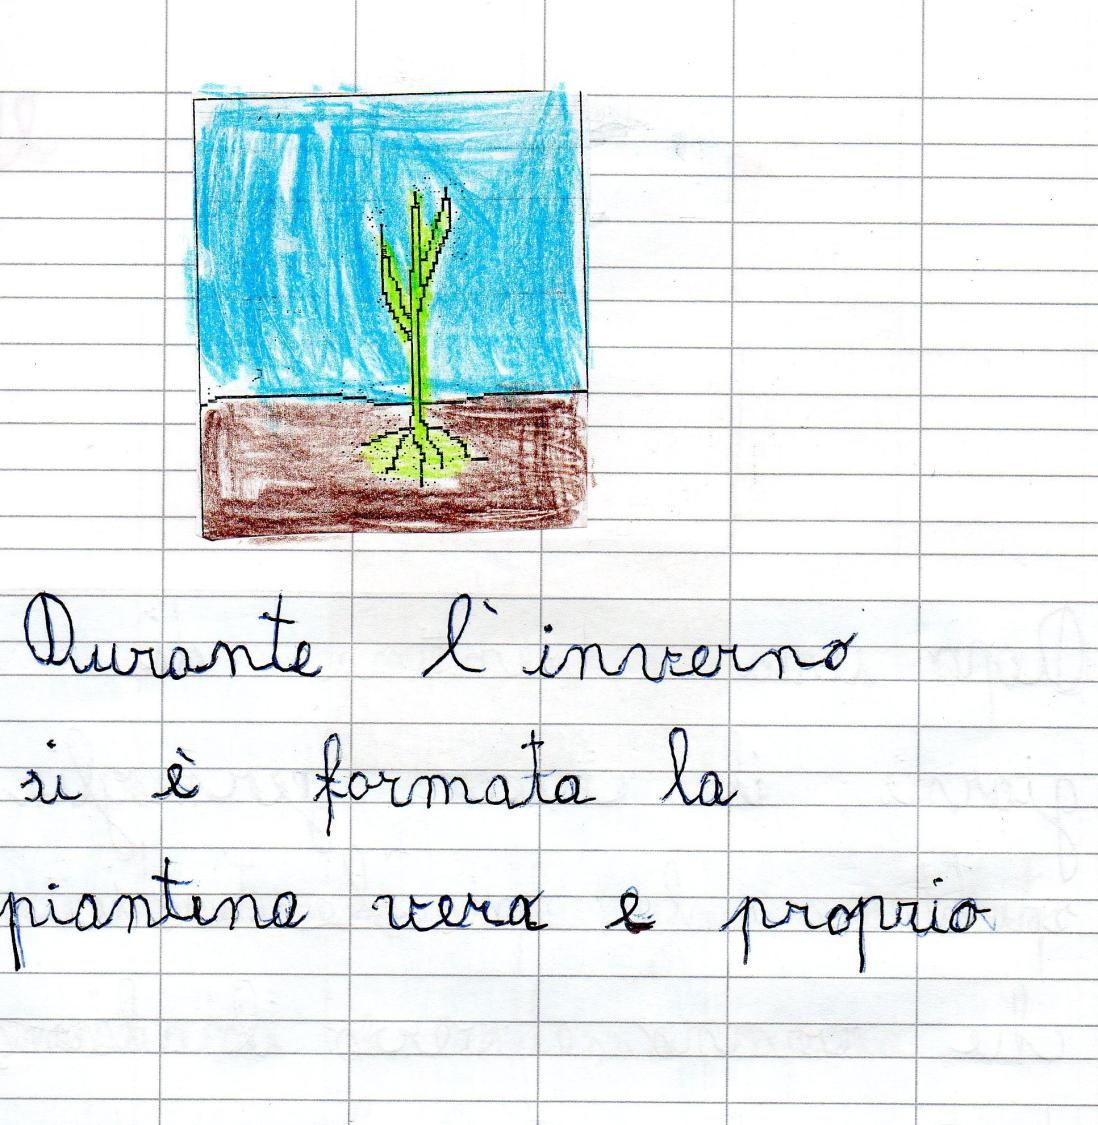 Durante l'inverno
si è formata la
piantina vera e propria